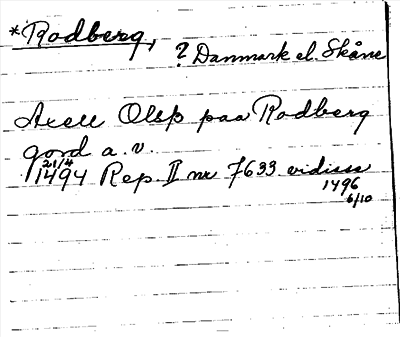 *Rodberg,
? Danmark el. Skåne
Axell Olsſ paa Rodberg
gord a. v.
21/4
1494 Rep. II nr 7633 vidisse
1496
6/10